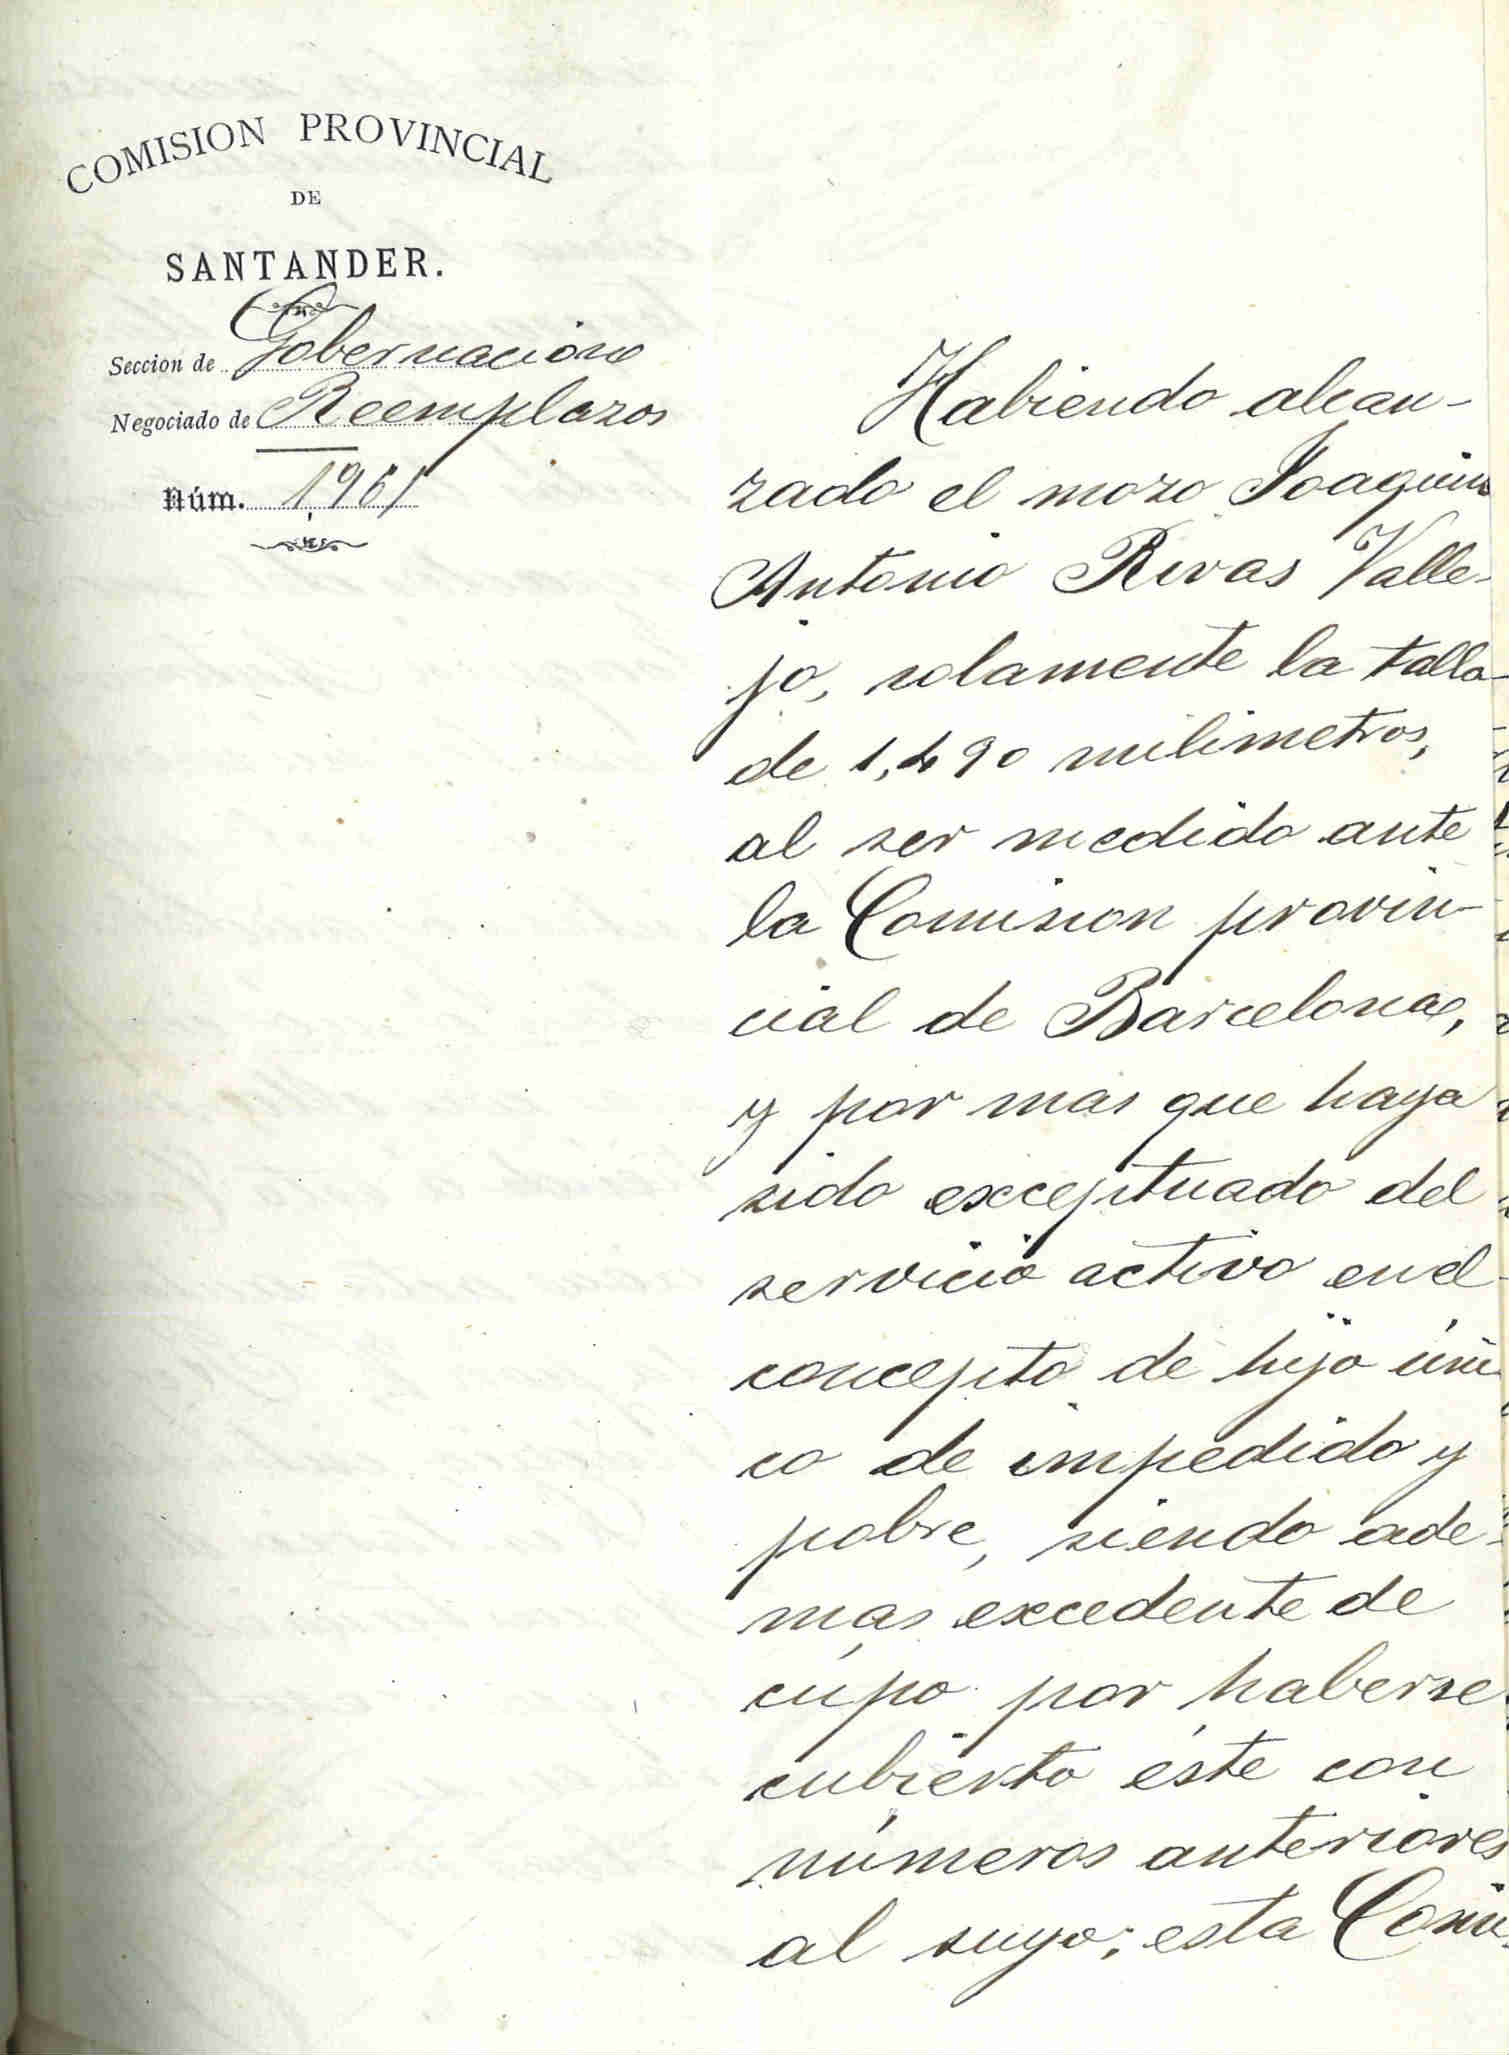 COMISION PROVINCIAL
DE
SANTANDER.
Seccion de Gobernacion
Negociado de Reemplazos
Núm. 1,961
Habiendo alcan-
zado el mozo Joaquin
Antonio Rivas Valle-
jo, solamente la talla
de 1,490 milimetros,
al ser medido ante
la Comision provin-
cial de Barcelona,
y por mas que haya
sido exceptuado del
servicio activo en el
concepto de hijo úni-
co de impedido y
pobre, siendo ade-
mas excedente de
cúpo por haberse
cubierto éste con
números anteriores
al suyo; esta Comi-